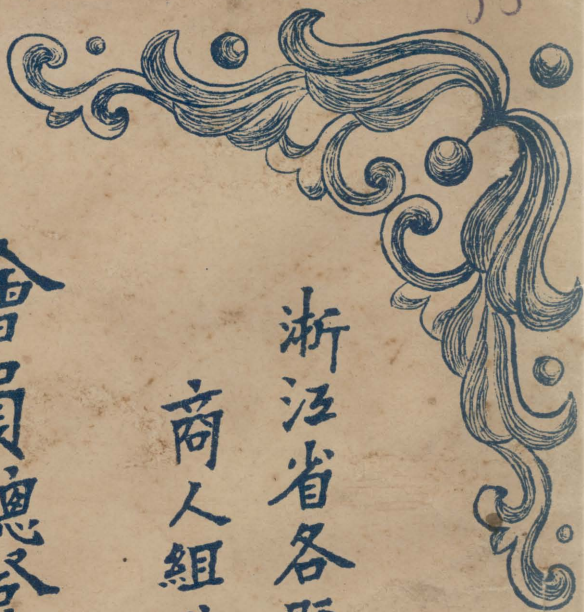 浙江省各
商人組
會員總登